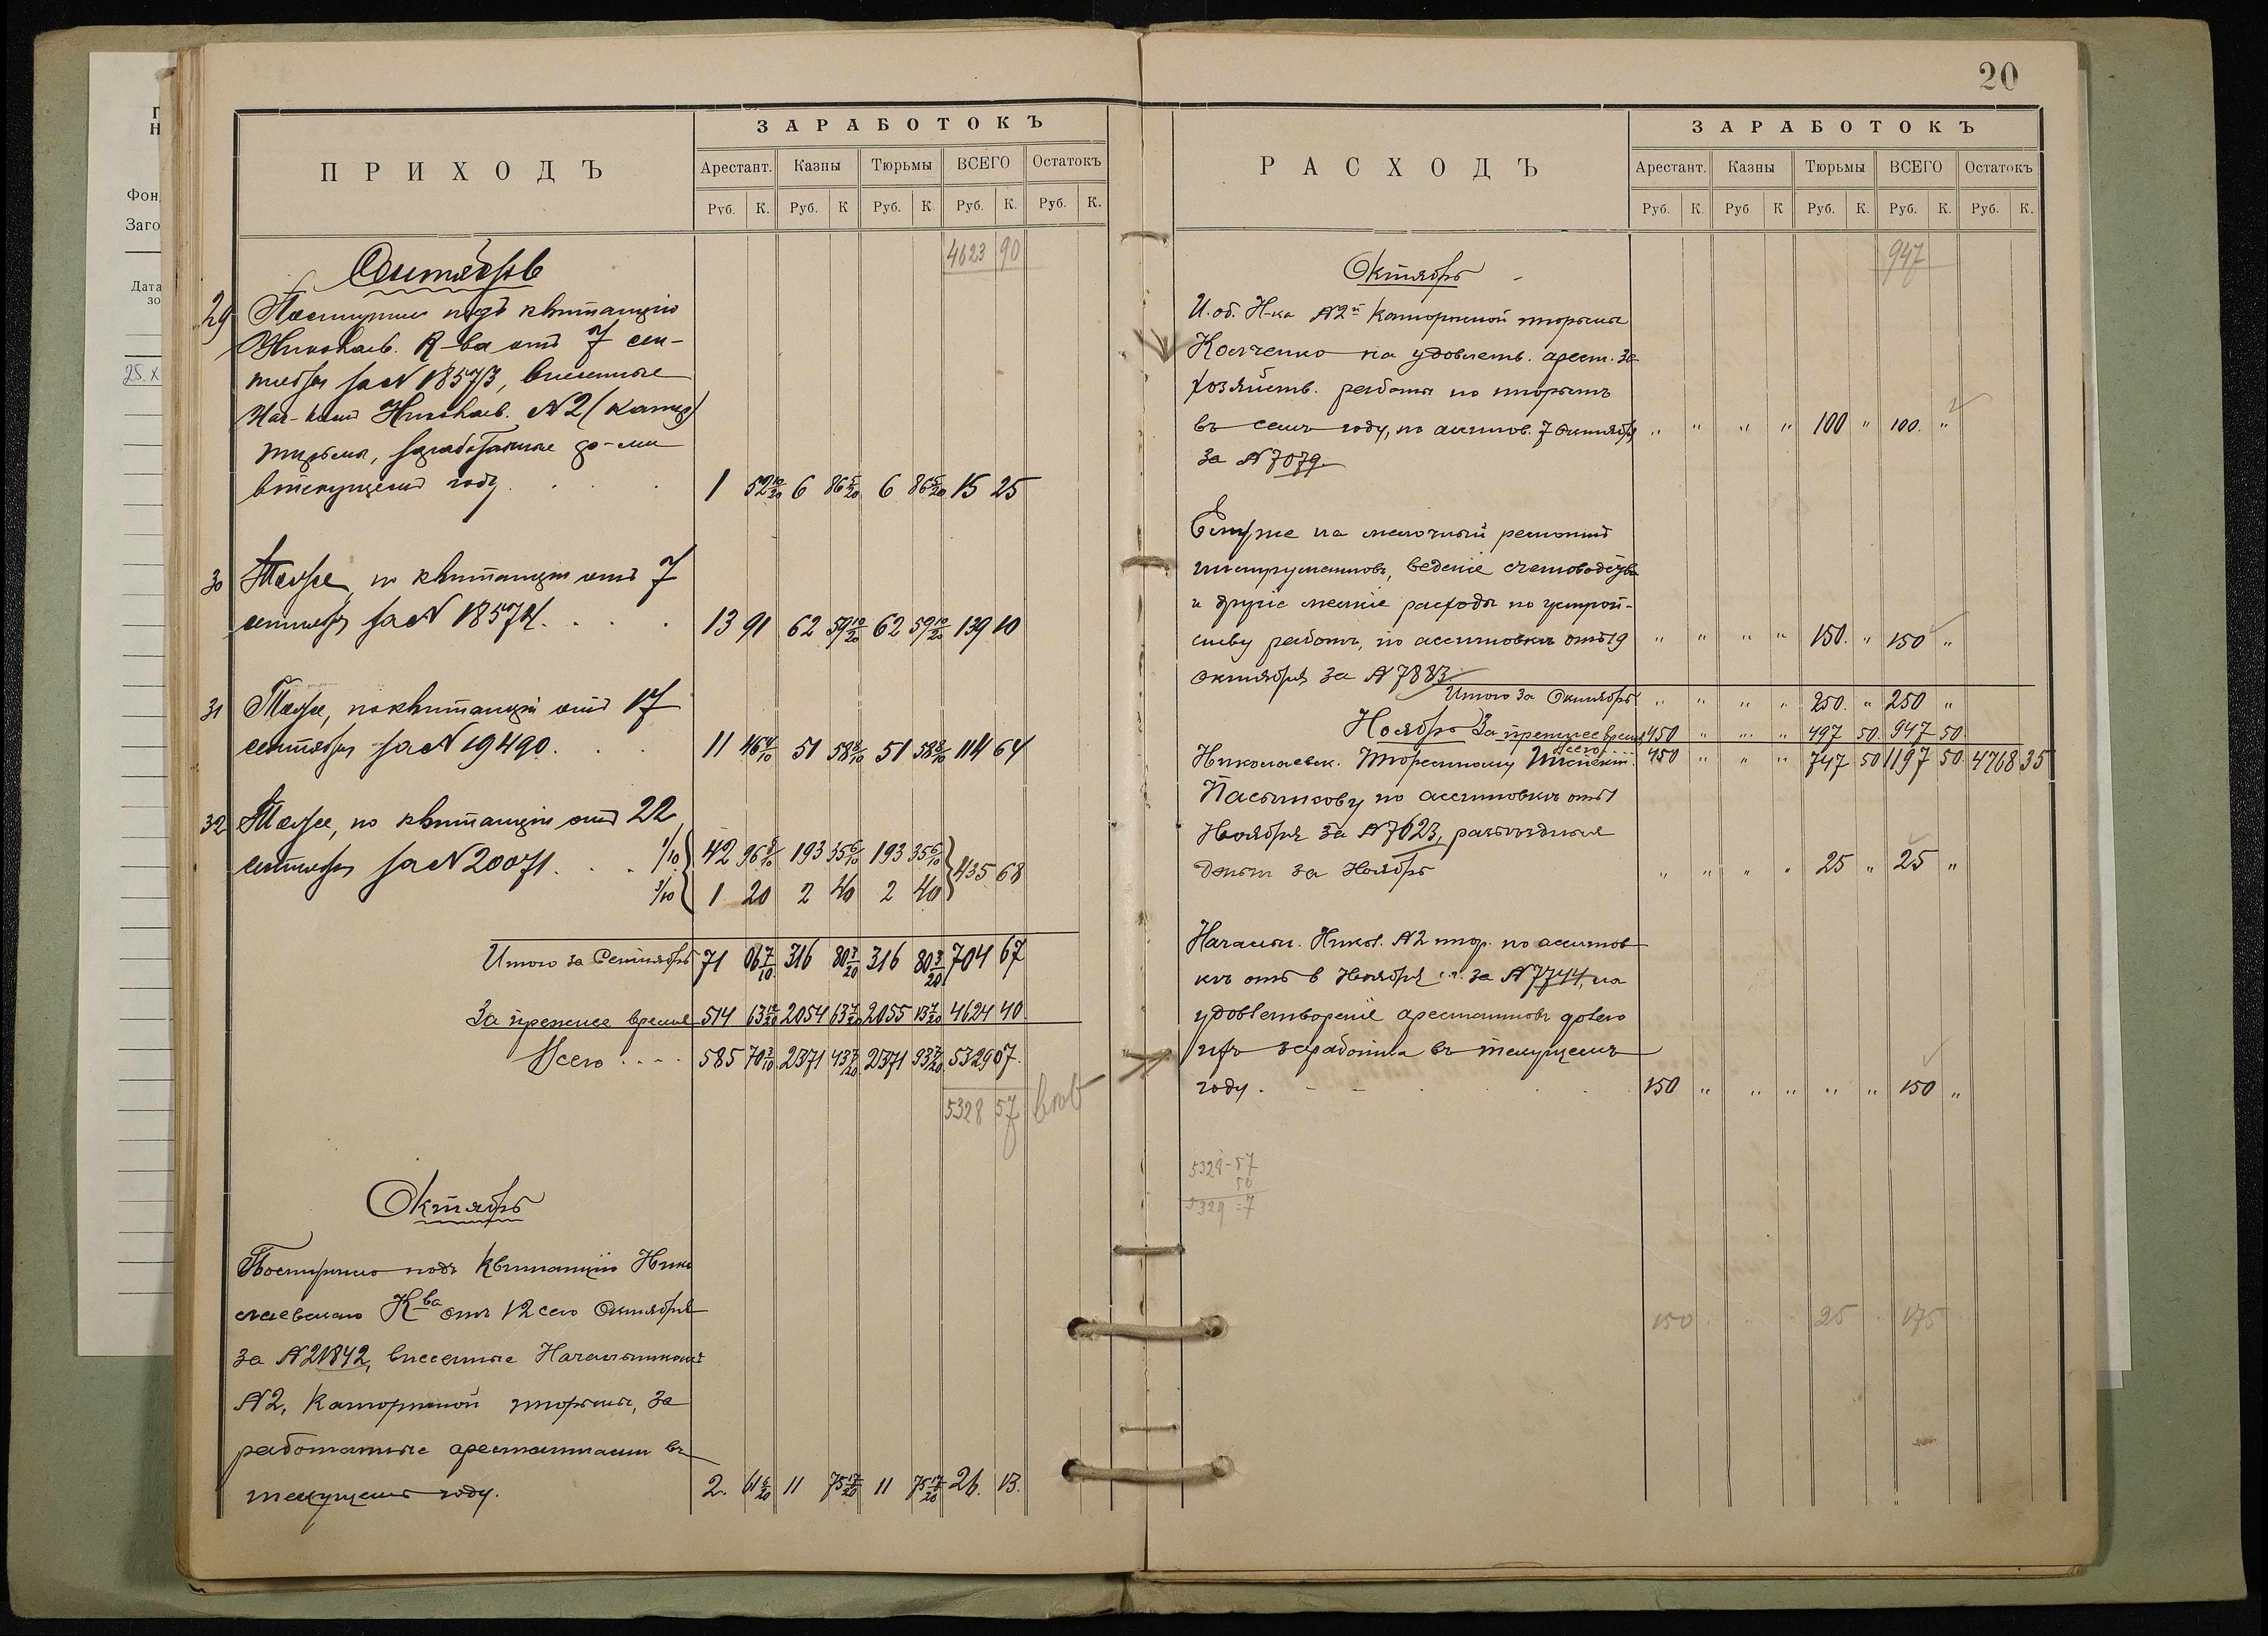 20
ПРИХОДЪ
ЗАРАБОТОКЪ
Арестант. Казны Тюрьмы ВСЕГО Остатокъ
Руб. К. Руб. К Руб. К. Руб. К. Руб. К.
4623 90
Сентябрь
29 Поступило подъ квитанцію
Николаев. К-ва отъ 7 сен-
тября за № 18573, внесенные
Нач-комъ Николаев. № 2 (катор)
тюрьмы, заработанные ар-ми
въ текущемъ году. . . . 1 52 10/20 6 86 5/20 6 86 5/20 15 25
30 Тоже, по квитанціи отъ 7
сентября за № 18574. . . . 13 91 62 59 10/20 62 59 10/20 139 10
31 Тоже, по квитанціи отъ 17
сентября за № 19490. . . 11 46 4/10 51 58 8/10 51 58 8/10 114 64
32 Тоже, по квитанціи отъ 22
сентября за № 20071. . . 1/10 42 96 8/10 193 35 6/10 193 35 6/10 435 68
1 20 2 40 2 40
Итого за Сентябрь 71 06 7/10 316 80 3/20 316 80 3/20 704 67
За прежнее время 514 63 12/20 2054 63 4/20 2055 13 4/20 4624 40
Всего . . . . 585 70 3/10 2371 43 7/20 2371 93 7/20 5329 07.
5328 57
Октябрь
Поступило подъ квитанцію Нико
лаевскаго К-ва отъ 12 сего Октября
за № 21842, внесенные Начальникомъ
№ 2, Каторжной тюрьмы, за
работанные арестантами въ
текущемъ году. 2. 61 6/20 11 75 17/20 11 75 17/20 26. 13.
РАСХОДЪ
ЗАРАБОТОКЪ
Арестант. Казны Тюрьмы ВСЕГО Остатокъ
Руб. К. Руб К Руб. К. Руб. К. Руб. К.
947
Октябрь
И. об. Н-ка № 2й Каторжной тюрьмы
Колченко на удовлетв. арест. за
хозяйств. работы по тюрьмѣ
въ семъ году, по ассигнов. 7 Октября " " " " 100 " 100. "
за № 7079.
Ему же на мелочный ремонтъ
инструментовъ, веденіе счетоводства
и другіе мелкіе расходы по устрой-
ству работъ, по ассигновкѣ отъ 19 " " " " 150. " 150 "
октября за № 7883
Итого за Октябрь " " " " 250. " 250 "
Ноябрь За прежнее время 450 " " " 497 50. 947 50.
Всего
Николаевск. Тюремному 450 " " " 747 50 1197 50 4768 35
Пасынкову по ассигновкѣ отъ 1
Ноября за № 7623, разъѣздныя
деньги за Ноябрь " " " " 25 " 25 "
Начальн. Никол. № 2 тюр. по ассигнов
кѣ отъ 6 Ноября с.г. за № 7744, на
удовлетвореніе арестантовъ долею
ихъ заработка въ текущемъ
году. 150 " " " " " 150 "
5328-57
50
5329=7
150 " " 25 " 175